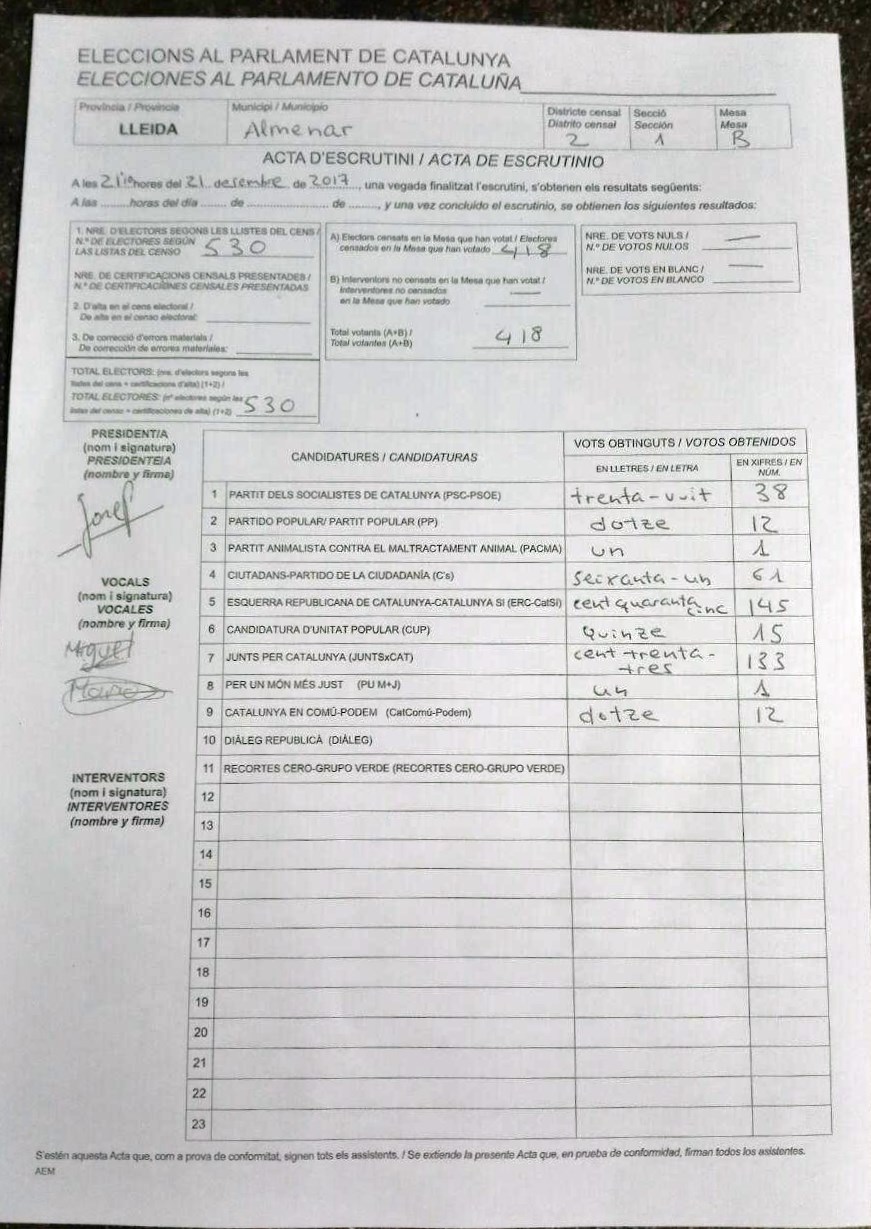 ELECCIONS AL PARLAMENT DE CATALUNYA
ELECCIONES AL PARLAMENTO DE CATALUÑA
Província / Provincia
LLEIDA
Municipi / Municipio
Almenar
Districte censal
Distrito censal
2
Secció
Sección
1
Mesa
Mesa
B
ACTA D'ESCRUTINI / ACTA DE ESCRUTINIO
A les 21:10 hores del 21 desembre de 2017, una vegada finalitzat l'escrutini, s'obtenen els resultats següents:
A las ........horas del día ...... de ........................ de ........, y una vez concluido el escrutinio, se obtienen los siguientes resultados:
1. NRE. D'ELECTORS SEGONS LES LLISTES DEL CENS /
N.º DE ELECTORES SEGÚN
LAS LISTAS DEL CENSO 530
NRE. DE CERTIFICACIONS CENSALS PRESENTADES /
N.º DE CERTIFICACIONES CENSALES PRESENTADAS
2. D'alta en el cens electoral /
De alta en el censo electoral:
3. De correcció d'errors materials /
De corrección de errores materiales:
TOTAL ELECTORS: (nre. d'electors segons les
llistes del cens + certificacions d'alta) (1+2) /
TOTAL ELECTORES: (nº electores según las
listas del censo + certificaciones de alta) (1+2) 530
A) Electors censats en la Mesa que han votat / Electores
censados en la Mesa que han votado 418
B) Interventors no censats en la Mesa que han votat /
Interventores no censados
en la Mesa que han votado —
Total votants (A+B) /
Total votantes (A+B) 418
NRE. DE VOTS NULS /
N.º DE VOTOS NULOS —
NRE. DE VOTS EN BLANC /
N.º DE VOTOS EN BLANCO —
PRESIDENT/A
(nom i signatura)
PRESIDENTE/A
(nombre y firma)
Josef
VOCALS
(nom i signatura)
VOCALES
(nombre y firma)
Miguel
INTERVENTORS
(nom i signatura)
INTERVENTORES
(nombre y firma)
CANDIDATURES / CANDIDATURAS
VOTS OBTINGUTS / VOTOS OBTENIDOS
EN LLETRES / EN LETRA
EN XIFRES / EN
NÚM.
1 PARTIT DELS SOCIALISTES DE CATALUNYA (PSC-PSOE) trenta-vuit 38
2 PARTIDO POPULAR/ PARTIT POPULAR (PP) dotze 12
3 PARTIT ANIMALISTA CONTRA EL MALTRACTAMENT ANIMAL (PACMA) un 1
4 CIUTADANS-PARTIDO DE LA CIUDADANÍA (C's) seixanta-un 61
5 ESQUERRA REPUBLICANA DE CATALUNYA-CATALUNYA SÍ (ERC-CatSí) cent quaranta cinc 145
6 CANDIDATURA D'UNITAT POPULAR (CUP) quinze 15
7 JUNTS PER CATALUNYA (JUNTSxCAT) cent trenta-tres 133
8 PER UN MÓN MÉS JUST (PU M+J) un 1
9 CATALUNYA EN COMÚ-PODEM (CatComú-Podem) dotze 12
10 DIÀLEG REPUBLICÀ (DIÀLEG)
11 RECORTES CERO-GRUPO VERDE (RECORTES CERO-GRUPO VERDE)
12
13
14
15
16
17
18
19
20
21
22
23
S'estén aquesta Acta que, com a prova de conformitat, signen tots els assistents. / Se extiende la presente Acta que, en prueba de conformidad, firman todos los asistentes.
AEM